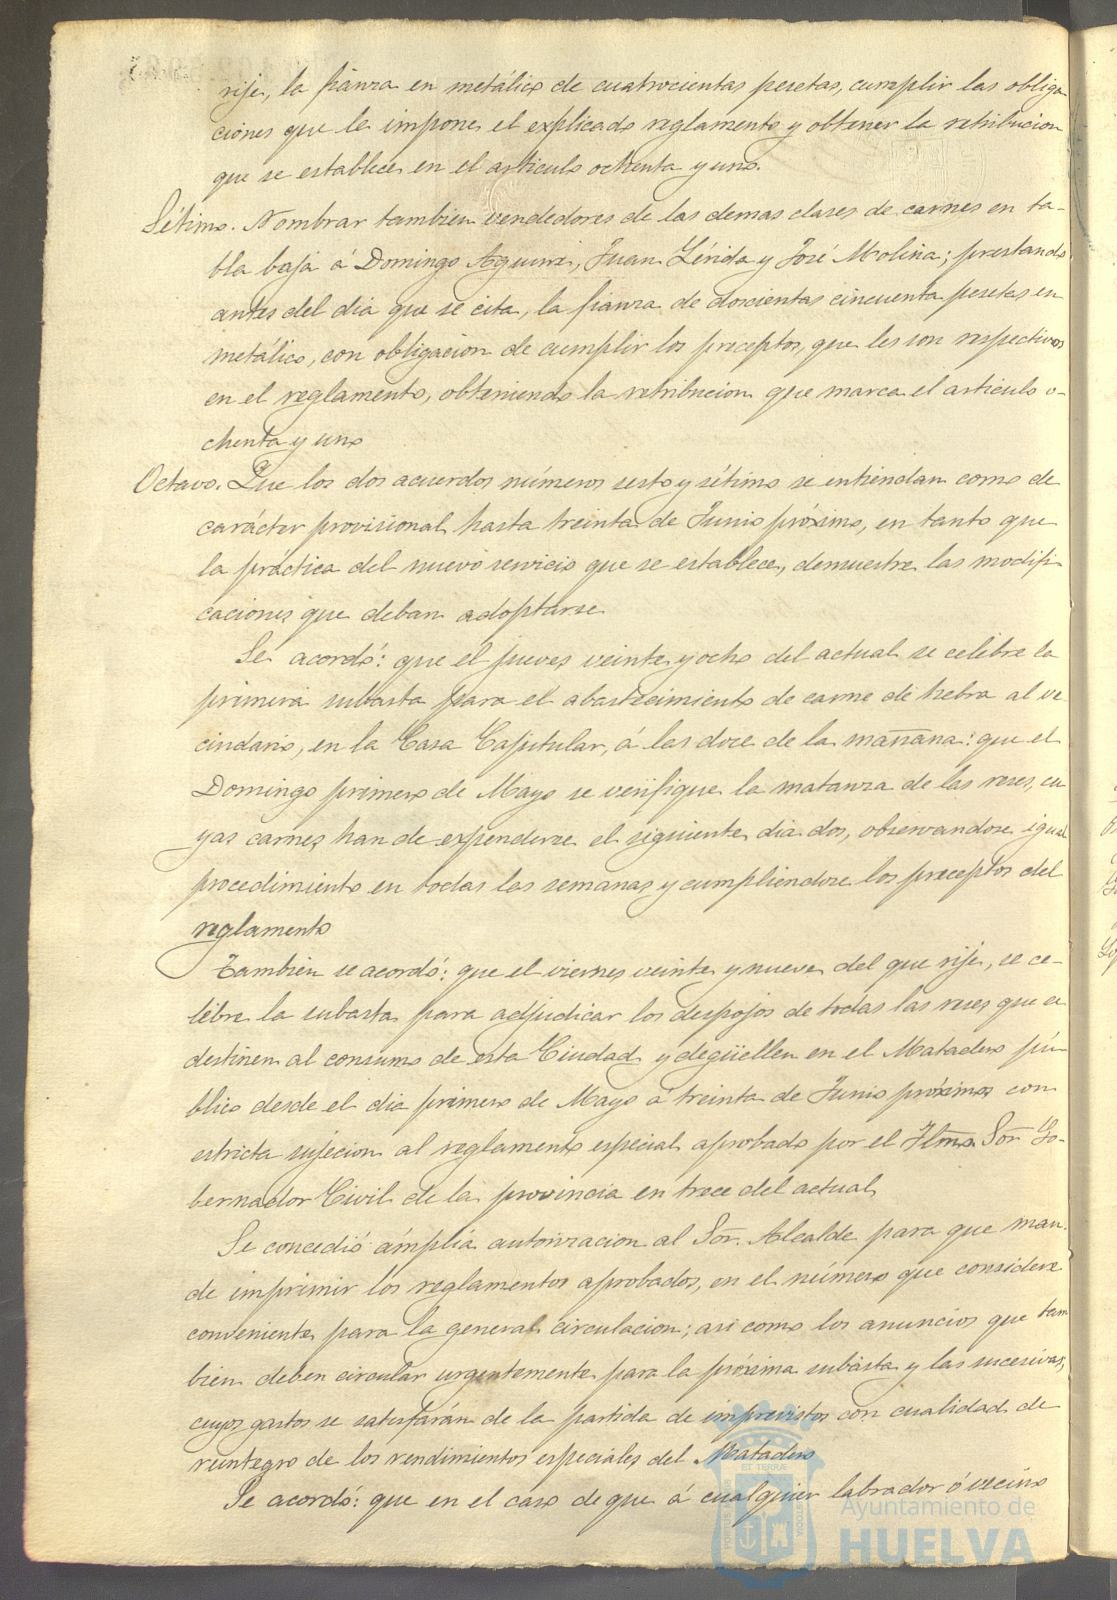 rije, la fianza en metálico de cuatrocientas pesetas, cumplir las obliga
ciones que le impone el explicado reglamento y obtener la retribucion
que se establece en el articulo ochenta y uno.
Sétimo. Nombrar tambien vendedores de las demas clases de carnes en ta-
bla baja á Domingo Aguirre, Juan Lérida y José Molina; prestando
antes del dia que se cita, la fianza de doscientas cincuenta pesetas en
metálico, con obligacion de cumplir los preceptos, que les son respectivos
en el reglamento, obteniendo la retribucion que marca el articulo o-
chenta y uno
Octavo. Que los dos acuerdos números sesto y sétimo se entiendan como de
carácter provisional hasta treinta de Junio próximo, en tanto que
la práctica del nuevo servicio que se establece, demuestre las modifi
caciones que deban adoptarse
Se acordó: que el jueves veinte y ocho del actual se celebre la
primera subasta para el abastecimiento de carne de hebra al ve
cindario, en la Casa Capitular, á las doce de la mañana: que el
Domingo primero de Mayo se verifique la matanza de las reses, cu
yas carnes han de expenderse el siguiente dia dos, observandose igual
procedimiento en todas las semanas y cumpliendose los preceptos del
reglamento
Tambien se acordó: que el viernes veinte y nueve del que rije, se ce-
lebre la subasta para adjudicar los despojos de todas las reses que se
destinen al consumo de esta Ciudad y degüellen en el Matadero pú
blico desde el dia primero de Mayo á treinta de Junio próximos con
estricta sujecion al reglamento especial aprobado por el Iltmo. Sor. Go-
bernador Civil de la provincia en trece del actual
Se concedió ámplia autorizacion al Sor. Alcalde para que man-
de imprimir los reglamentos aprobados, en el número que considere
conveniente para la general circulacion; asi como los anuncios que tam
bien deben circular urgentemente para la próxima subasta y las sucesivas;
cuyos gastos se satisfarán de la partida de imprevistos con cualidad de
reintegro de los rendimientos especiales del Matadero
Se acordó: que en el caso de que á cualquier labrador ó vecino
Ayuntamiento de
HUELVA